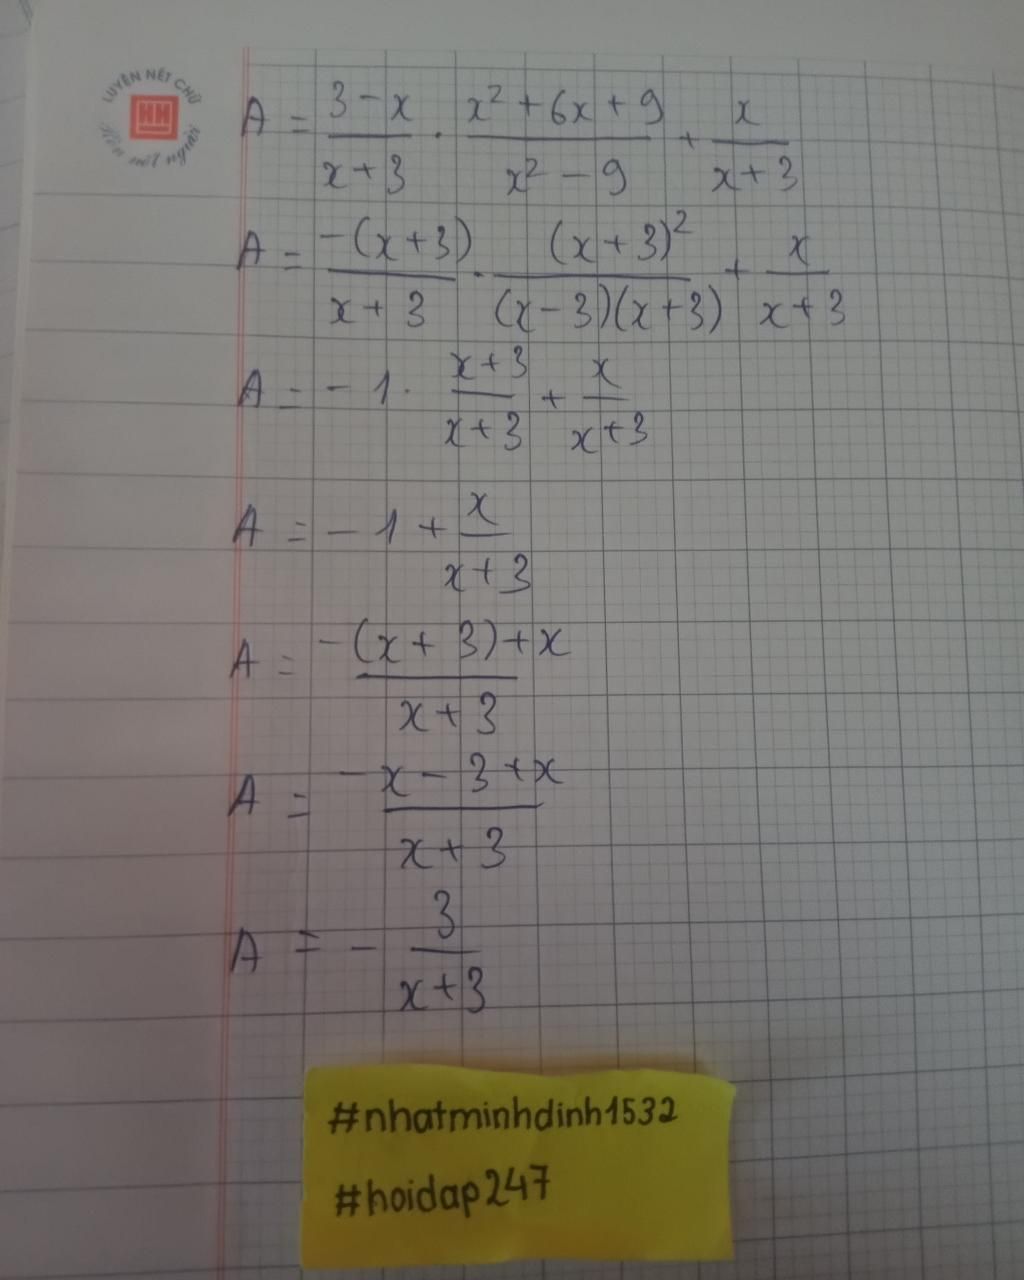 LUYỆN NÉT CHỮ
HH
Rèn nết người
A = \frac{3 - x}{x + 3} \cdot \frac{x^2 + 6x + 9}{x^2 - 9} + \frac{x}{x + 3}
A = \frac{-(x + 3)}{x + 3} \cdot \frac{(x + 3)^2}{(x - 3)(x + 3)} + \frac{x}{x + 3}
A = -1 \cdot \frac{x + 3}{x + 3} + \frac{x}{x + 3}
A = -1 + \frac{x}{x + 3}
A = \frac{-(x + 3) + x}{x + 3}
A = \frac{-x - 3 + x}{x + 3}
A = -\frac{3}{x + 3}
#nhatminhdinh1532
#hoidap247